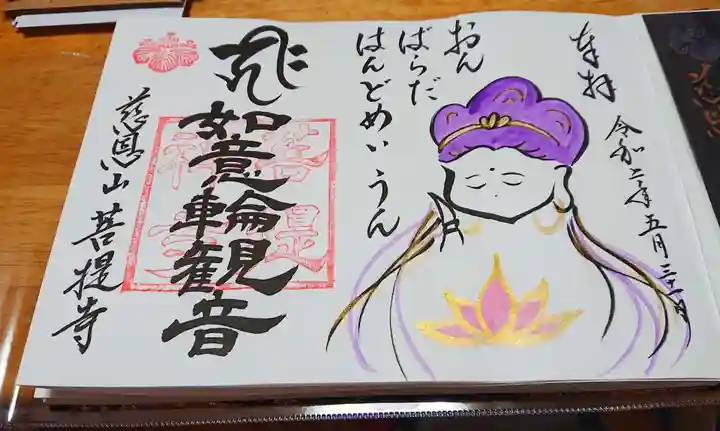 奉拝
令和二年五月三十一日
おん
ばらだ
はんどめいうん
如意輪観音
慈恩山 菩提寺
菩提